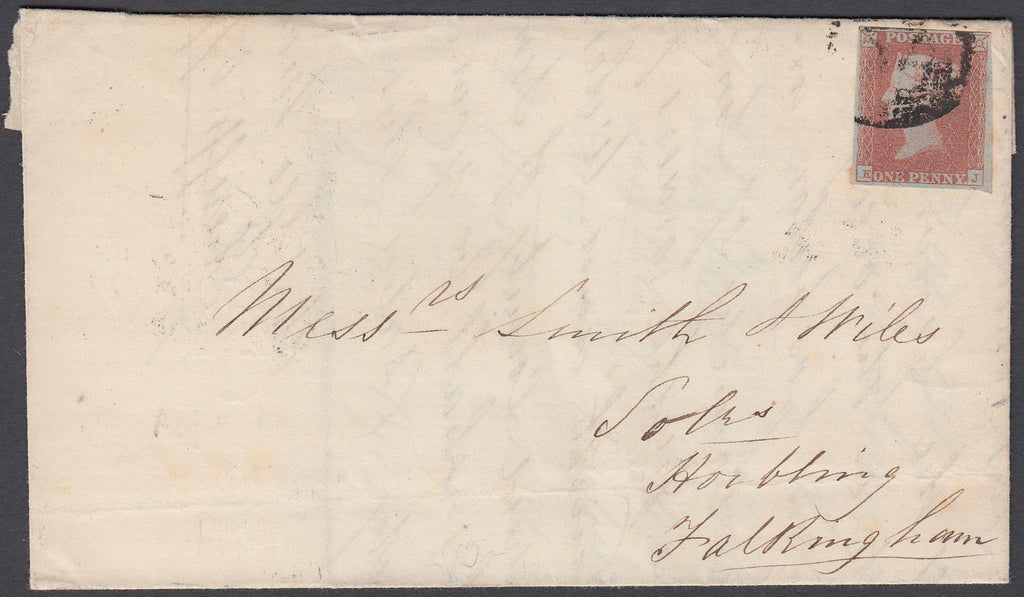 POSTAGE
E ONE PENNY J
Messrs Smith & Wiles
Solrs
Horbling
Falkingham